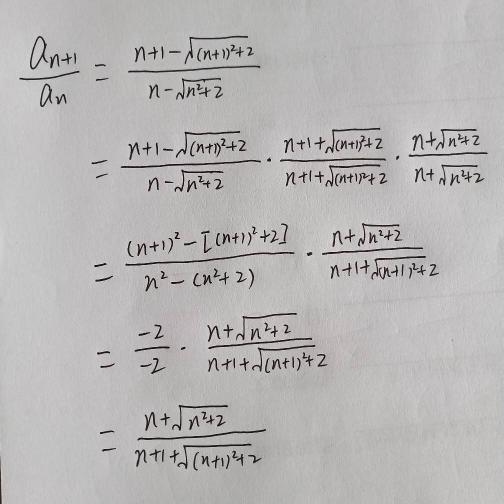 \frac{a_{n+1}}{a_n} = \frac{n+1-\sqrt{(n+1)^2+2}}{n-\sqrt{n^2+2}}
= \frac{n+1-\sqrt{(n+1)^2+2}}{n-\sqrt{n^2+2}} \cdot \frac{n+1+\sqrt{(n+1)^2+2}}{n+1+\sqrt{(n+1)^2+2}} \cdot \frac{n+\sqrt{n^2+2}}{n+\sqrt{n^2+2}}
= \frac{(n+1)^2-[(n+1)^2+2]}{n^2-(n^2+2)} \cdot \frac{n+\sqrt{n^2+2}}{n+1+\sqrt{(n+1)^2+2}}
= \frac{-2}{-2} \cdot \frac{n+\sqrt{n^2+2}}{n+1+\sqrt{(n+1)^2+2}}
= \frac{n+\sqrt{n^2+2}}{n+1+\sqrt{(n+1)^2+2}}